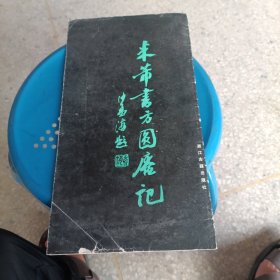 米芾书方圆庵记
沙孟海题
浙江古籍出版社